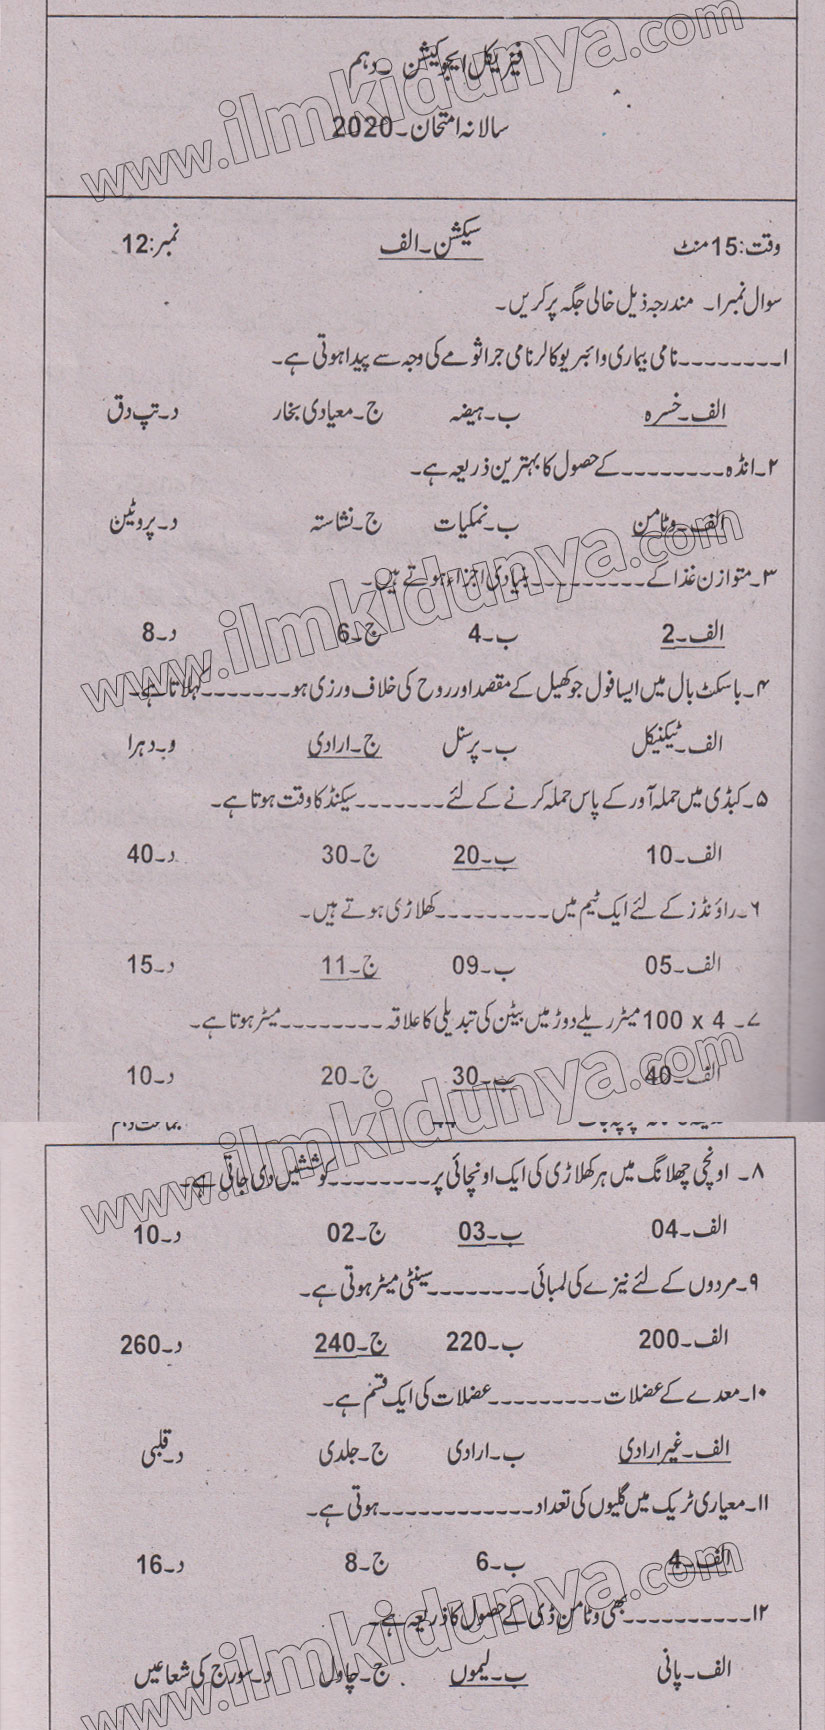 فزیکل ایجوکیشن ۔ دہم
سالانہ امتحان۔2020
وقت:15منٹ سیکشن۔الف نمبر:12
سوال نمبر۱۔ مندرجہ ذیل خالی جگہ پر کریں۔
۱۔۔۔۔۔۔۔۔نامی بیماری وائبریوکالرنامی جراثومے کی وجہ سے پیدا ہوتی ہے۔
الف۔خسرہ ب۔ہیضہ ج۔معیادی بخار د۔تپ دق
۲۔انڈہ۔۔۔۔۔۔۔۔کے حصول کا بہترین ذریعہ ہے۔
الف۔وٹامن ب۔نمکیات ج۔نشاستہ د۔پروٹین
۳۔متوازن غذا کے۔۔۔۔۔۔۔۔۔بنیادی اجزاء ہوتے ہیں۔
الف۔2 ب۔4 ج۔6 د۔8
۴۔باسکٹ بال میں ایسا فول جو کھیل کے مقصد اور روح کی خلاف ورزی ہو۔۔۔۔۔۔۔کہلاتا ہے۔
الف۔ٹیکنیکل ب۔پرسنل ج۔ارادی و۔دہرا
۵۔کبڈی میں حملہ آور کے پاس حملہ کرنے کے لئے۔۔۔۔۔۔۔سیکنڈ کا وقت ہوتا ہے۔
الف۔10 ب۔20 ج۔30 د۔40
۶۔راؤنڈز کے لئے ایک ٹیم میں۔۔۔۔۔۔۔۔۔کھلاڑی ہوتے ہیں۔
الف۔05 ب۔09 ج۔11 د۔15
۷۔ 4 x 100 میٹر ریلے دوڑ میں بیٹن کی تبدیلی کا علاقہ۔۔۔۔۔۔۔۔میٹر ہوتا ہے۔
الف۔40 ب۔30 ج۔20 د۔10
۸۔ اونچی چھلانگ میں ہر کھلاڑی کی ایک اونچائی پر۔۔۔۔۔۔۔۔کوششیں دی جاتی ہے۔
الف۔04 ب۔03 ج۔02 د۔10
۹۔مردوں کے لئے نیزے کی لمبائی۔۔۔۔۔۔۔۔سینٹی میٹر ہوتی ہے۔
الف۔200 ب۔220 ج۔240 د۔260
۱۰۔معدے کے عضلات۔۔۔۔۔۔۔۔۔عضلات کی ایک قسم ہے۔
الف۔غیر ارادی ب۔ارادی ج۔جلدی د۔قلبی
۱۱۔معیاری ٹریک میں گلیوں کی تعداد۔۔۔۔۔۔۔۔۔۔۔۔ہوتی ہے۔
الف۔4 ب۔6 ج۔8 د۔16
۱۲۔۔۔۔۔۔۔۔۔۔بھی وٹامن ڈی کے حصول کا ذریعہ ہے۔
الف۔پانی ب۔لیموں ج۔چاول د۔سورج کی شعاعیں
www.ilmkidunya.com
www.ilmkidunya.com
www.ilmkidunya.com
www.ilmkidunya.com